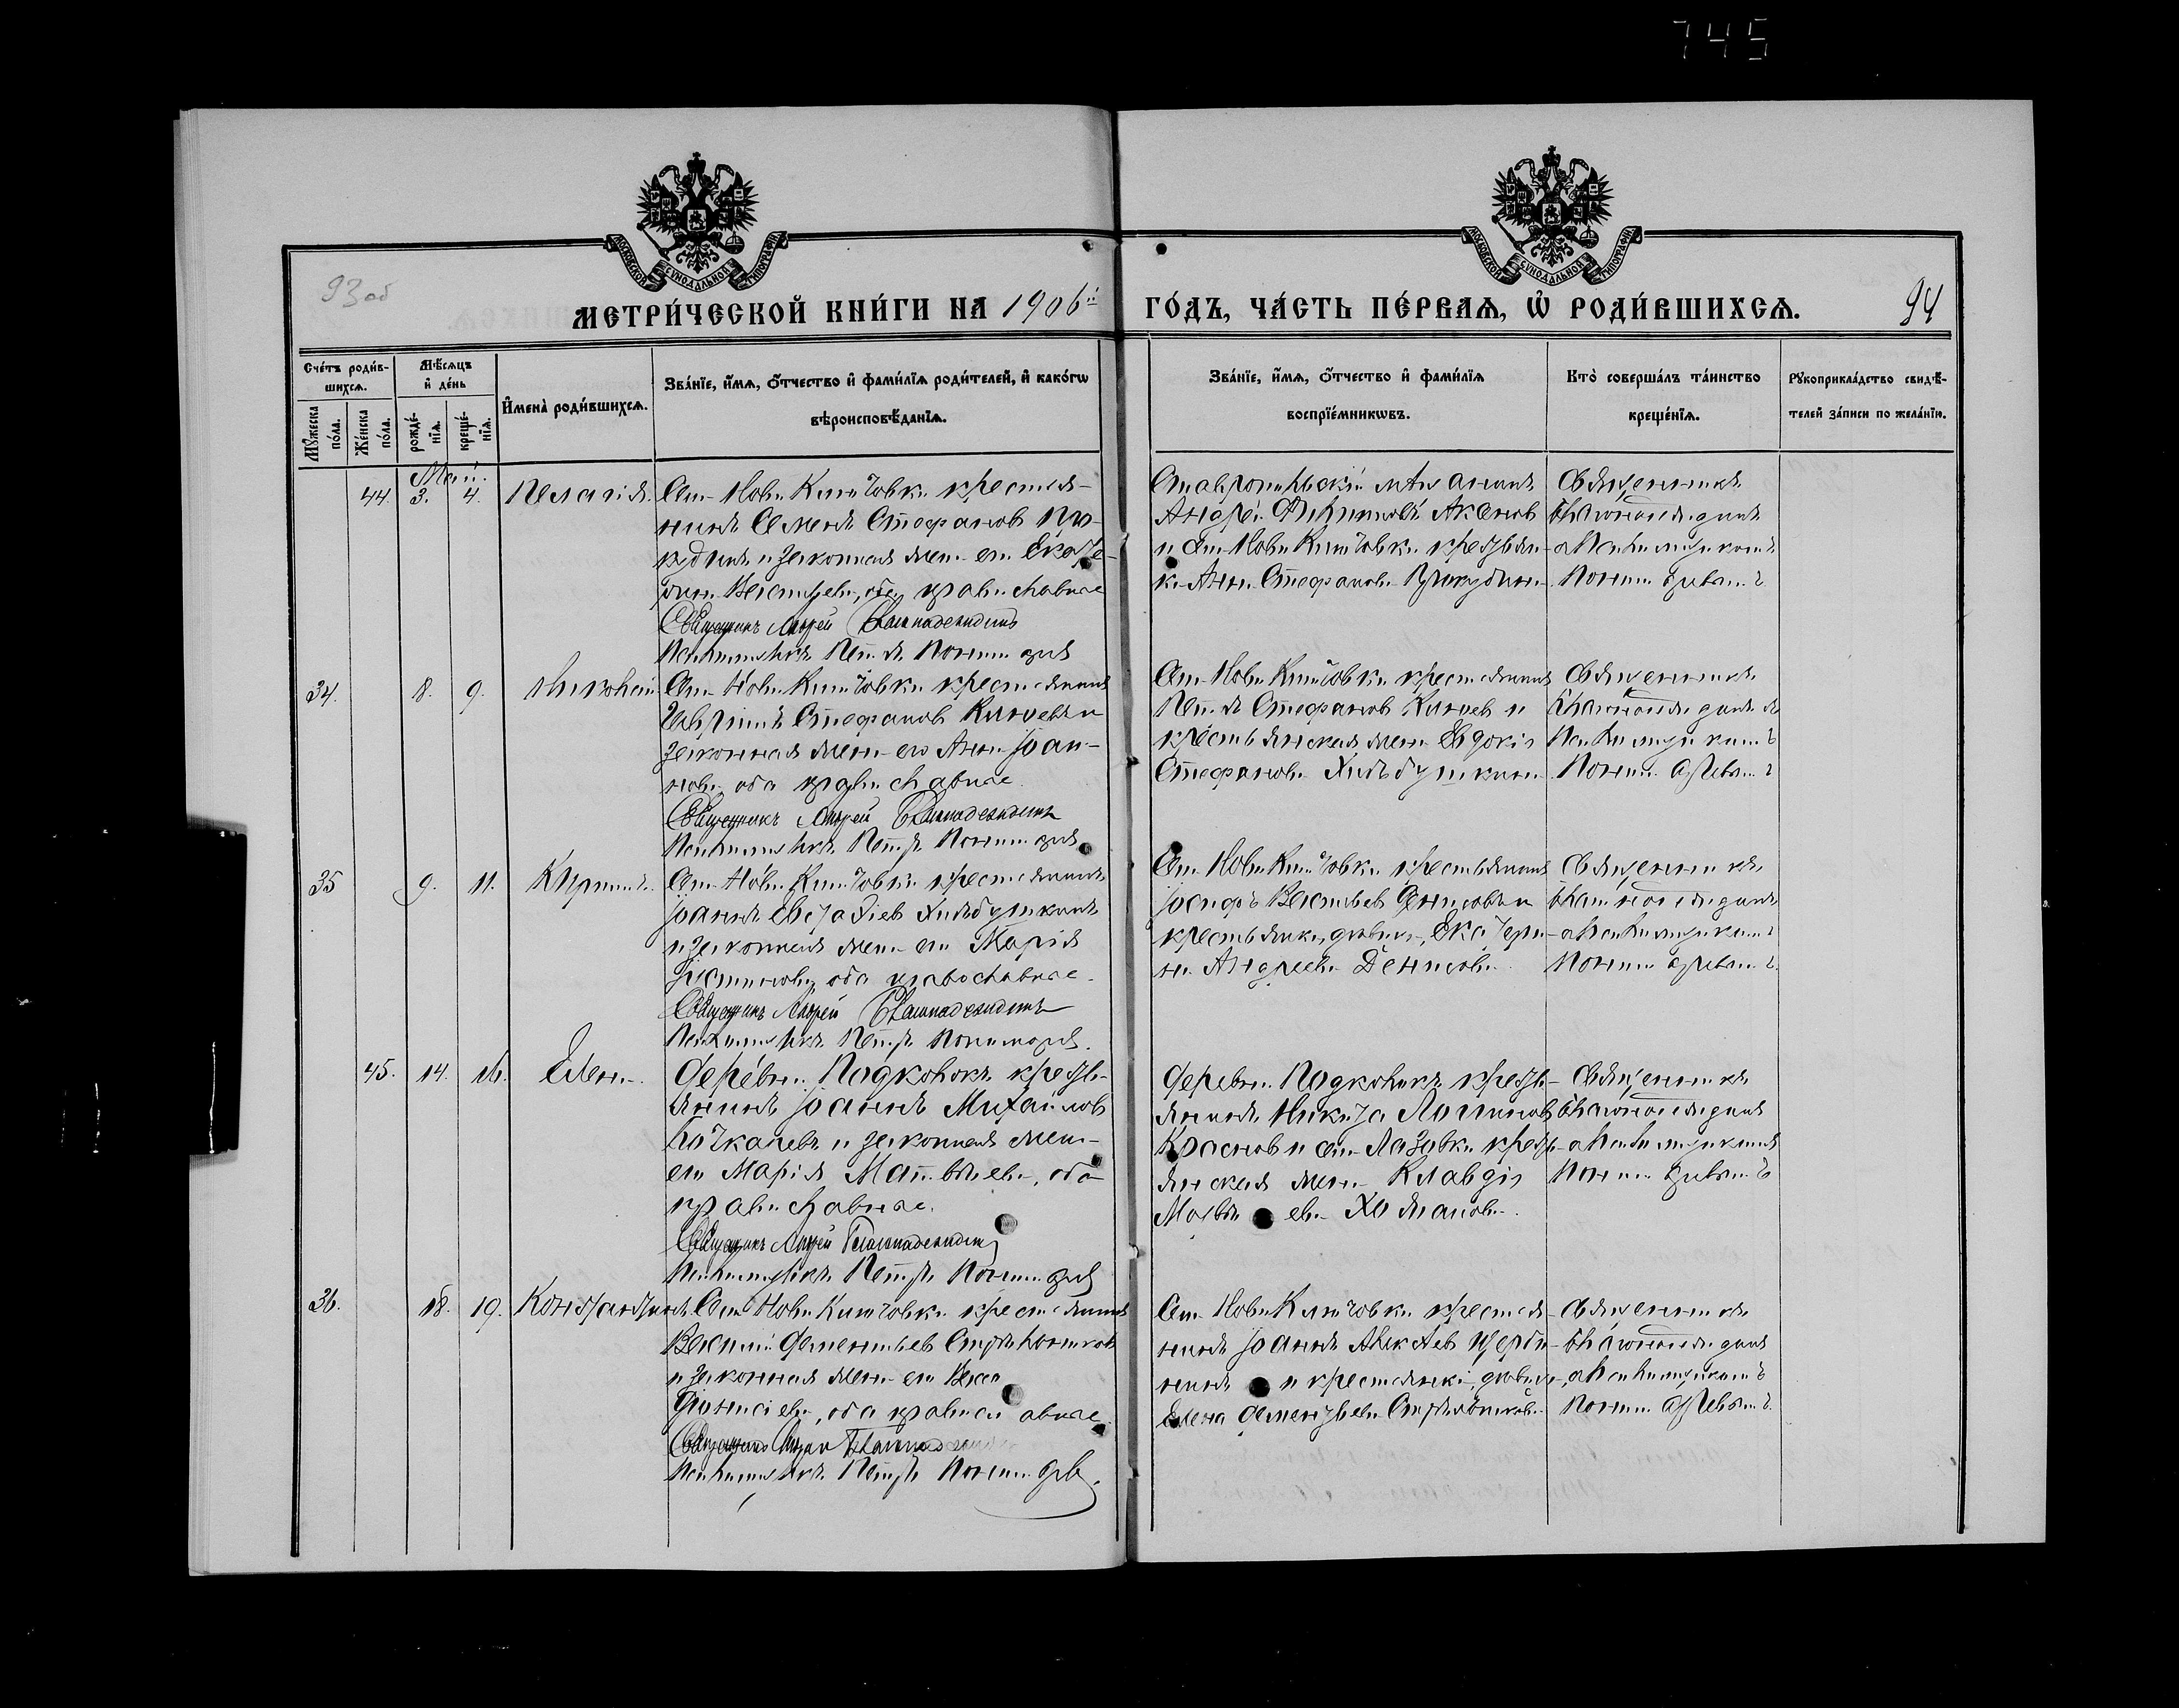 745
МОСКОВСКОЙ СУНОДАЛЬНОЙ ТИПОГРАФІИ
МОСКОВСКОЙ СУНОДАЛЬНОЙ ТИПОГРАФІИ
93 об
94
МЕТРИ́ЧЕСКОЙ КНИ́ГИ НА 1906й ГО́ДЪ, ЧА́СТЬ ПЕ́РВАѦ, Ѡ҆ РОДИ́ВШИХСѦ.
Сче́тъ роди́в-
шихсѧ.
Мꙋ́жеска по́ла.
Же́нска по́ла.
Мѣ́сѧцъ и҆ де́нь
рожде́-
нїѧ.
креще́-
нїѧ.
И҆мена̀ роди́вшихсѧ.
Зва́нїе, и҆́мѧ, ѻ҆́тчество и҆ фами́лїѧ роди́телей, и҆ како́гѡ
вѣроисповѣ́данїѧ.
Зва́нїе, и҆́мѧ, ѻ҆́тчество и҆ фами́лїѧ
воспрїе́мникѡвъ.
Кто̀ соверша́лъ та́инство
креще́нїѧ.
Рꙋкоприкла́дство свидѣ́-
телей за́писи по жела́нїю.
Май.
44. 3. 4. Пелагія.
Сел. Новокличовки крестья-
нинъ Семенъ Стефановъ
и законная жена его Екате-
рина Васильева, оба православные
Священникъ Андрей Благонадеждинъ
Псаломщикъ Петръ
Ставропольскій мѣщанинъ
Андрей Акановъ
и сел. Новокличовки крестьян-
ка Анна Стефанова
Священникъ
Благонадеждинъ
а Псаломщикомъ
34. 8. 9. Николай
Сел. Новокличовки крестьянинъ
Гавріилъ Стефановъ Клюевъ и
законная жена его Анна Іоан-
нова, оба православные.
Священникъ Андрей Благонадеждинъ
Псаломщикъ Петръ
Сел. Новокличовки крестьянинъ
Петръ Стефановъ Клюевъ и
крестьянская жена Евдокія
Стефанова Хлѣбушкина.
Священникъ
Благонадеждинъ
Псаломщикомъ
35 9. 11. Кириллъ.
Сел. Новокличовки крестьянинъ
Іоаннъ Евстафіевъ Хлѣбушкинъ
и законная жена его Марія
Іустинова, оба православные.
Священникъ Андрей Благонадеждинъ
Псаломщикъ Петръ
Сел. Новокличовки крестьянинъ
Іосифъ Васильевъ Денисовъ и
крестьянка, дѣвица, Екатери-
на Андреева Денисова.
Священникъ
Благонадеждинъ
а Псаломщикомъ
45. 14. 16. Елена.
Деревни Подколокъ кресть-
янинъ Іоаннъ Михайловъ
и законная жена
его Марія Матвѣева, оба
православные.
Священникъ Андрей Благонадеждинъ
Псаломщикъ Петръ
Деревни Подколокъ кресть-
янинъ Никита Логиновъ
Красновъ и сел. Лазовки кресть-
янская жена Клавдія
Матвѣева
Священникъ
Благонадеждинъ
а Псаломщикомъ
36. 18. 19. Константинъ
Сел. Новокличовки крестьянинъ
Василій Дементьевъ Стрѣльниковъ
и законная жена его Васса
Діонисіева, оба православные.
Священникъ Андрей
Псаломщикъ Петръ
Сел. Новокличовки крестья-
нинъ Іоаннъ Алексѣевъ Щерби-
нинъ и крестьянская дѣвица,
Елена Дементьева Стрѣльникова.
Священникъ
Благонадеждинъ
а Псаломщикомъ